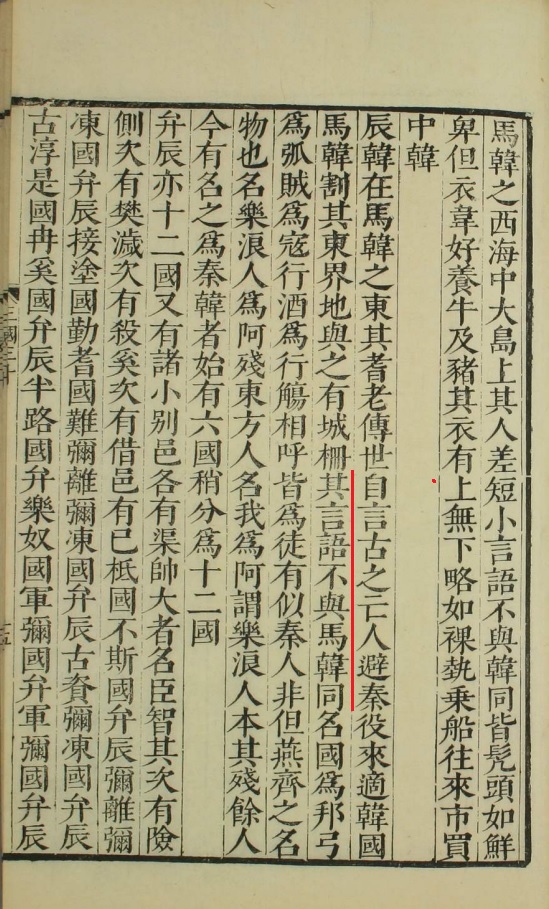 馬韓之西海中大島上其人差短小言語不與韓同皆髡頭如鮮
卑但衣韋好養牛及豬其衣有上無下略如裸埶乗船往來市買
中韓
辰韓在馬韓之東其耆老傳世自言古之亡人避秦役來適韓國
馬韓割其東界地與之有城柵其言語不與馬韓同名國爲邦弓
爲弧賊爲寇行酒爲行觴相呼皆爲徒有似秦人非但燕齊之名
物也名樂浪人爲阿殘東方人名我爲阿謂樂浪人本其殘餘人
今有名之爲秦韓者始有六國稍分爲十二國
弁辰亦十二國又有諸小別邑各有渠帥大者名臣智其次有險
側次有樊濊次有殺奚次有借邑有已柢國不斯國弁辰彌離彌
凍國弁辰接塗國勤耆國難彌離彌凍國弁辰古資彌凍國弁辰
古淳是國冉奚國弁辰半路國弁樂奴國軍彌國弁軍彌國弁辰
三國三十